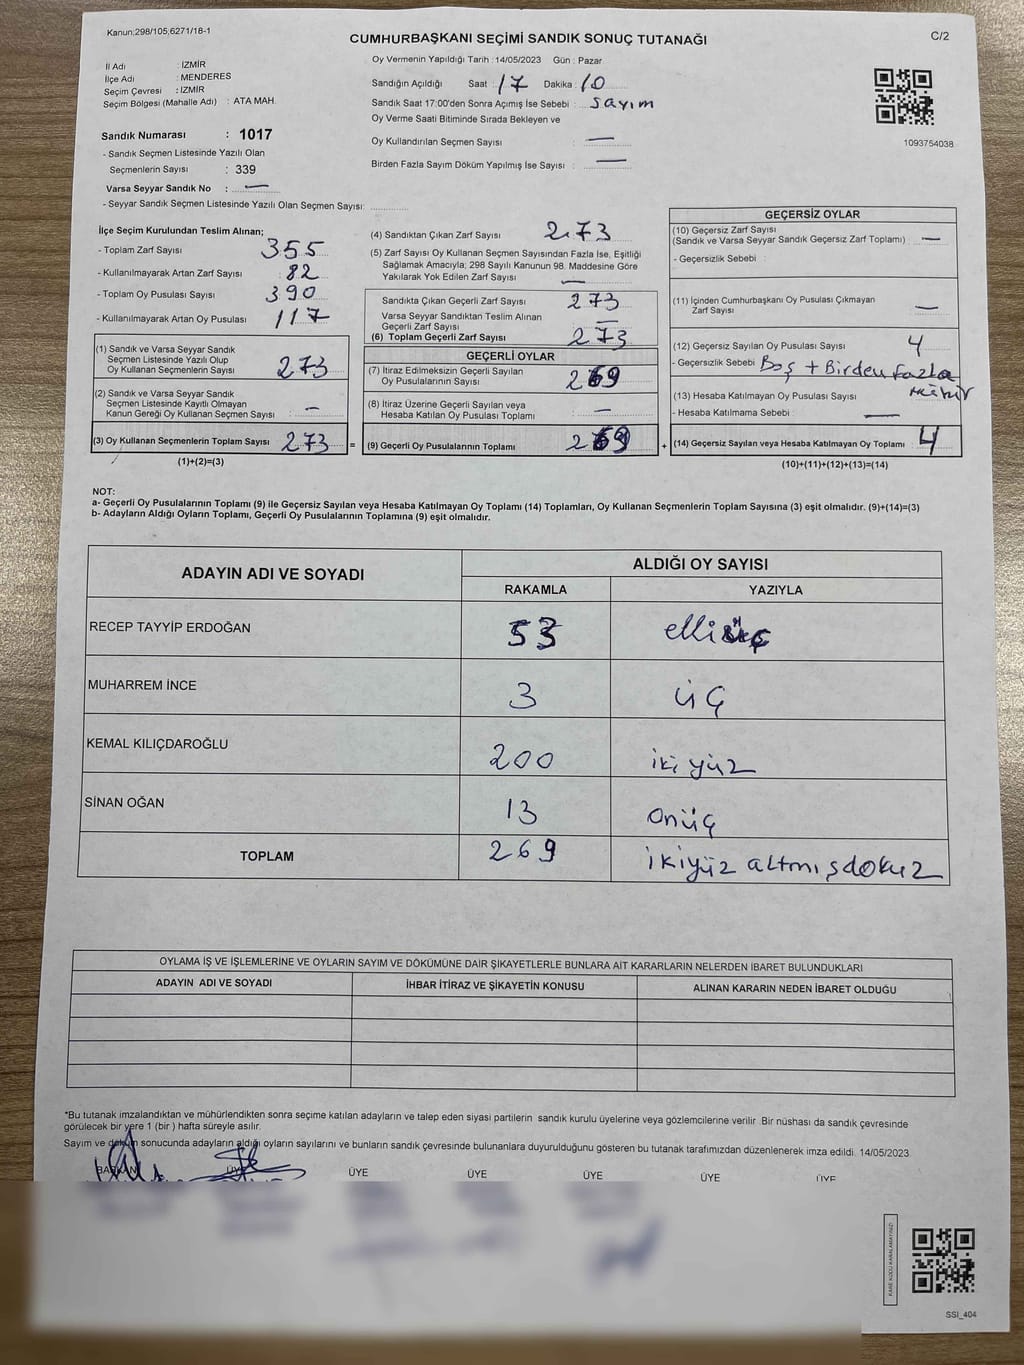 Kanun;298/105;6271/18-1
CUMHURBAŞKANI SEÇİMİ SANDIK SONUÇ TUTANAĞI
C/2
İl Adı : İZMİR
İlçe Adı : MENDERES
Seçim Çevresi : İZMİR
Seçim Bölgesi (Mahalle Adı) : ATA MAH.
Sandık Numarası : 1017
- Sandık Seçmen Listesinde Yazılı Olan
Seçmenlerin Sayısı : 339
Varsa Seyyar Sandık No : —
- Seyyar Sandık Seçmen Listesinde Yazılı Olan Seçmen Sayısı:
Oy Vermenin Yapıldığı Tarih : 14/05/2023 Gün : Pazar
Sandığın Açıldığı Saat : 17 Dakika : 10
Sandık Saat 17:00'den Sonra Açımış İse Sebebi : sayım
Oy Verme Saati Bitiminde Sırada Bekleyen ve
Oy Kullandırılan Seçmen Sayısı : —
Birden Fazla Sayım Döküm Yapılmış İse Sayısı : —
1093754038
İlçe Seçim Kurulundan Teslim Alınan;
- Toplam Zarf Sayısı : 355
- Kullanılmayarak Artan Zarf Sayısı : 82
- Toplam Oy Pusulası Sayısı : 390
- Kullanılmayarak Artan Oy Pusulası : 117
(1) Sandık ve Varsa Seyyar Sandık
Seçmen Listesinde Yazılı Olup
Oy Kullanan Seçmenlerin Sayısı : 273
(2) Sandık ve Varsa Seyyar Sandık
Seçmen Listesinde Kayıtlı Olmayan
Kanun Gereği Oy Kullanan Seçmen Sayısı : —
(3) Oy Kullanan Seçmenlerin Toplam Sayısı : 273 =
(1)+(2)=(3)
(4) Sandıktan Çıkan Zarf Sayısı : 273
(5) Zarf Sayısı Oy Kullanan Seçmen Sayısından Fazla İse, Eşitliği
Sağlamak Amacıyla; 298 Sayılı Kanunun 98. Maddesine Göre
Yakılarak Yok Edilen Zarf Sayısı : —
Sandıkta Çıkan Geçerli Zarf Sayısı : 273
Varsa Seyyar Sandıktan Teslim Alınan
Geçerli Zarf Sayısı : —
(6) Toplam Geçerli Zarf Sayısı : 273
GEÇERLİ OYLAR
(7) İtiraz Edilmeksizin Geçerli Sayılan
Oy Pusulalarının Sayısı : 269
(8) İtiraz Üzerine Geçerli Sayılan veya
Hesaba Katılan Oy Pusulaları Toplamı : —
(9) Geçerli Oy Pusulalarının Toplamı : 269 +
GEÇERSİZ OYLAR
(10) Geçersiz Zarf Sayısı
(Sandık ve Varsa Seyyar Sandık Geçersiz Zarf Toplamı) : —
- Geçersizlik Sebebi :
(11) İçinden Cumhurbaşkanı Oy Pusulası Çıkmayan
Zarf Sayısı : —
(12) Geçersiz Sayılan Oy Pusulası Sayısı : 4
- Geçersizlik Sebebi : Boş + Birden fazla
mühür
(13) Hesaba Katılmayan Oy Pusulası Sayısı :
- Hesaba Katılmama Sebebi : —
(14) Geçersiz Sayılan veya Hesaba Katılmayan Oy Toplamı : 4
(10)+(11)+(12)+(13)=(14)
NOT:
a- Geçerli Oy Pusulalarının Toplamı (9) ile Geçersiz Sayılan veya Hesaba Katılmayan Oy Toplamı (14) Toplamları, Oy Kullanan Seçmenlerin Toplam Sayısına (3) eşit olmalıdır. (9)+(14)=(3)
b- Adayların Aldığı Oyların Toplamı, Geçerli Oy Pusulalarının Toplamına (9) eşit olmalıdır.
ADAYIN ADI VE SOYADI
ALDIĞI OY SAYISI
RAKAMLA YAZIYLA
RECEP TAYYİP ERDOĞAN 53 elliüç
MUHARREM İNCE 3 üç
KEMAL KILIÇDAROĞLU 200 ikiyüz
SİNAN OĞAN 13 onüç
TOPLAM 269 ikiyüz altmışdokuz
OYLAMA İŞ VE İŞLEMLERİNE VE OYLARIN SAYIM VE DÖKÜMÜNE DAİR ŞİKAYETLERLE BUNLARA AİT KARARLARIN NELERDEN İBARET BULUNDUKLARI
ADAYIN ADI VE SOYADI İHBAR İTİRAZ VE ŞİKAYETİN KONUSU ALINAN KARARIN NEDEN İBARET OLDUĞU
*Bu tutanak imzalandıktan ve mühürlendikten sonra seçime katılan adayların ve talep eden siyasi partilerin sandık kurulu üyelerine veya gözlemcilerine verilir. Bir nüshası da sandık çevresinde
görülecek bir yere 1 (bir ) hafta süreyle asılır.
Sayım ve döküm sonucunda adayların aldığı oyların sayılarını ve bunların sandık çevresinde bulunanlara duyurulduğunu gösteren bu tutanak tarafımızdan düzenlenerek imza edildi. 14/05/2023
BAŞKAN ÜYE ÜYE ÜYE ÜYE ÜYE ÜYE
KARE KODU KARALAMAYINIZ!
SSİ_404